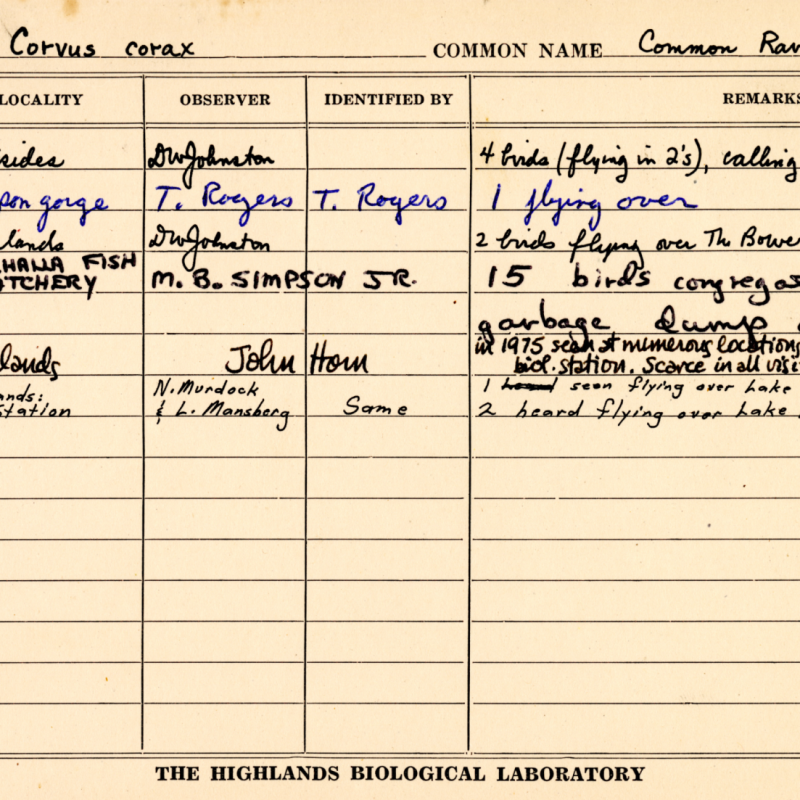 Corvus corax COMMON NAME Common Rav
LOCALITY OBSERVER IDENTIFIED BY REMARKS
sides DWJohnston 4 birds (flying in 2's), calling
gorge T. Rogers T. Rogers 1 flying over
lands DWJohnston 2 birds flying over The Bower
HALLA FISH
TCHERY M. B. SIMPSON JR. 15 birds congrega
garbage dump
in 1975 seen at numerous locations
lands John Horn biol. station. Scarce in all visi
nds: N. Murdock 1 seen flying over Lake
Station & L. Mansberg Same 2 heard flying over Lake
THE HIGHLANDS BIOLOGICAL LABORATORY